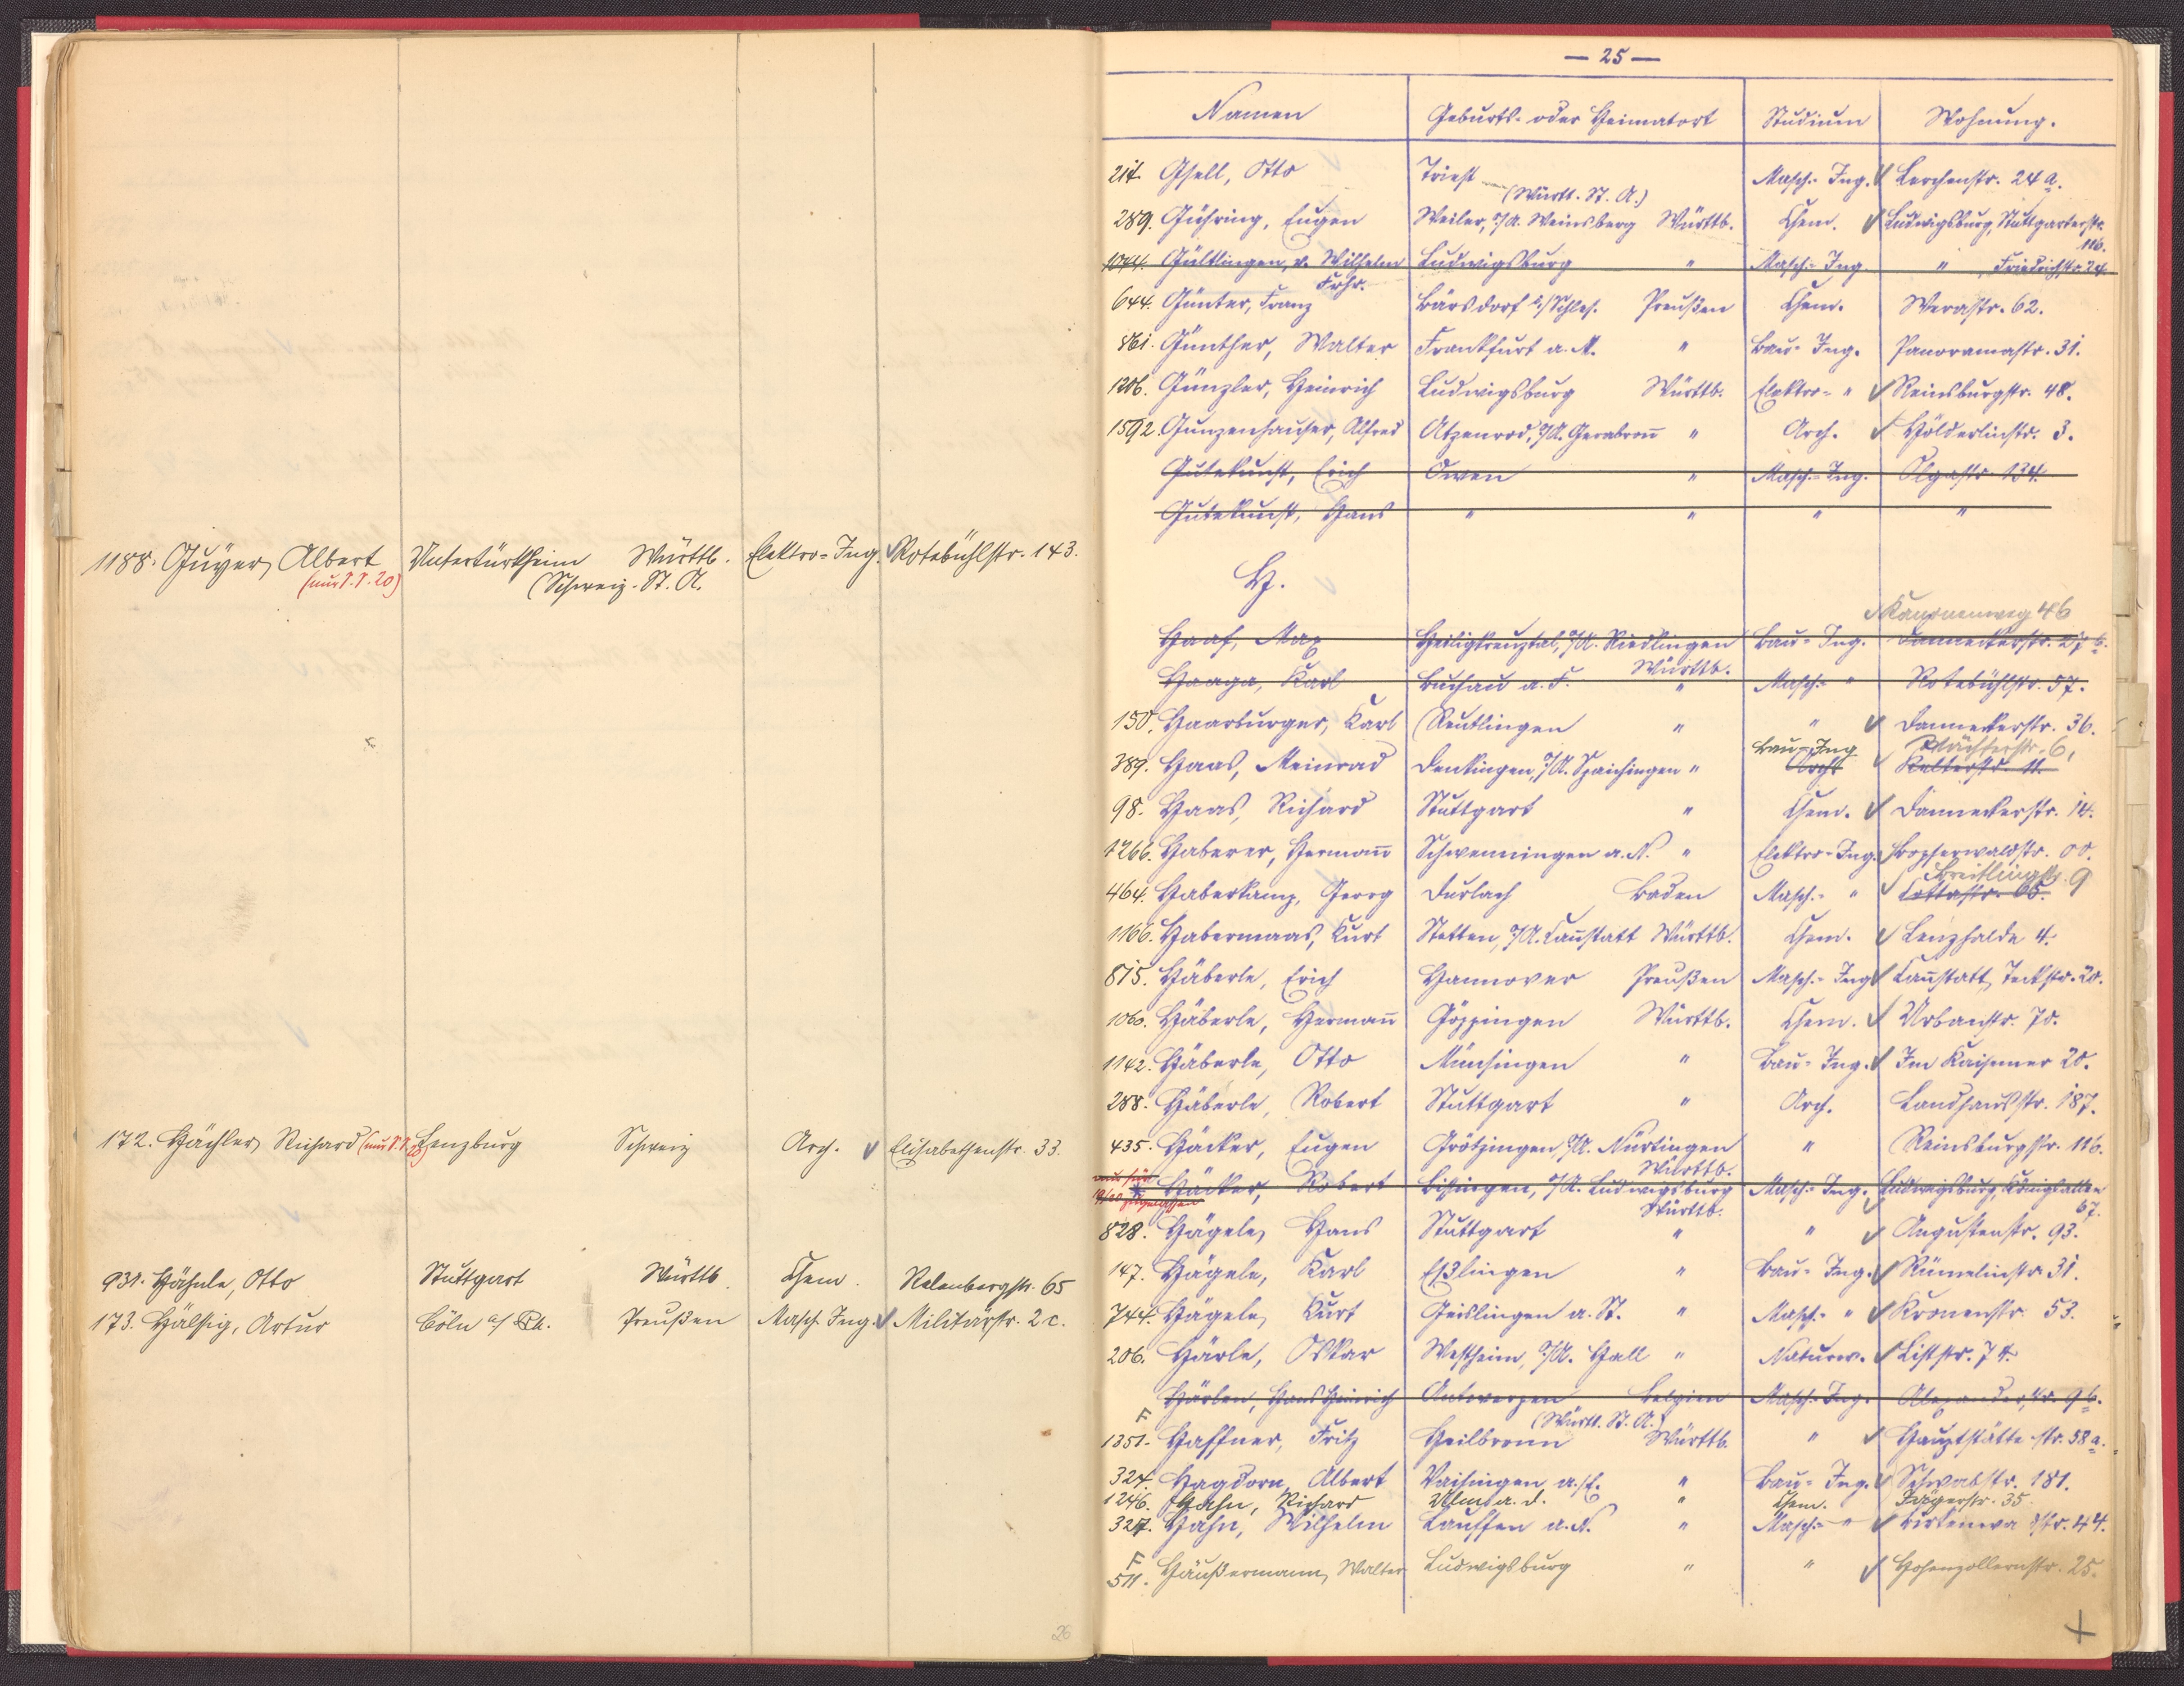 1188. Guyer, Albert Untertürkheim Württb. Elektro-Ing. Rotebühlstr. 143.
(nur S.S. 20) (Schweiz. St. A.
172. Hächler, Richard (nur S.S. 20) Lenzburg Schweiz Arch. Elisabethenstr. 33.
931. Hähnle, Otto Stuttgart Württb. Chem. Relenbergstr. 65
173. Hälsig, Artur Cöln a/Rh. Preußen Masch. Ing. Militärstr. 2c.
26
— 25 —
Namen Geburts- oder Heimatort Studium Wohnung.
214. Gsell, Otto Triest (Württ. St. A.) Masch.- Ing. Lerchenstr. 24 a.
289. Gühring, Eugen Weiler, O/A. Weinsberg Württb. Chem. Ludwigsburg, Stuttgarterstr. 116.
1044. Gültlingen, v. Wilhelm Frhr. Ludwigsburg " Masch.- Ing. " Friedrichstr. 24.
644. Günter, Franz Bärsdorf i/Schles. Preußen Chem. Werastr. 62.
861. Günther, Walter Frankfurt a. M. " Bau- Ing. Panoramastr. 31.
1206. Günzler, Heinrich Ludwigsburg Württb. Elektro- " Reinsburgstr. 48.
1592. Gunzenhauser, Alfred Atzenrod, O/A. Gerabron̄ " Arch. Hölderlinstr. 3.
Gutekunst, Erich Owen " Masch.- Ing. Olgastr. 134.
Gutekunst, Hans " " " "
H.
Kanonenweg 46
Haaf, Max Heiligkreuztal, O/A. Riedlingen Württb. Bau- Ing. Danneckerstr. 27 b.
Haaga, Karl Buchau a. F. " Masch.- " Rotebühlstr. 57.
150. Haarburger, Karl Reutlingen " " Danneckerstr. 36.
389. Haas, Meinrad Denkingen, O/A. Spaichingen " Bau-Ing. Arch. Wächterstr. 6, Kelterstr. 11.
98. Haas, Richard Stuttgart " Chem. Danneckerstr. 14.
1266. Haberer, Herman̄ Schwenningen a. N. " Elektro-Ing. Bopserwaldstr. 00.
464. Haberkamp, Georg Durlach Baden Masch.- " Breitlingstr. 9 Cottastr. 65.
1166. Habermaas, Kurt Stetten, O/A. Can̄statt Württb. Chem. Lenzhalde 4.
815. Häberle, Erich Hannover Preußen Masch.- Ing. Can̄statt, Teckstr. 20.
1060. Häberle, Herman̄ Göppingen Württb. Chem. Urbanstr. 70.
1142. Häberle, Otto Münsingen " Bau- Ing. Im Kaisemer 20.
288. Häberle, Robert Stuttgart " Arch. Landhausstr. 187.
435. Häcker, Eugen Grötzingen O/A. Nürtingen Württb. " Reinsburgstr. 116.
nur für 19/20 zugelassen Häcker, Robert Bissingen, O/A. Ludwigsburg Württb. Masch.- Ing. Ludwigsburg, Königsallee 67.
828. Hägele, Hans Stuttgart " " Augustenstr. 93.
147. Hägele, Karl Eßlingen " Bau- Ing. Rümelinstr. 31.
744. Hägele, Kurt Geislingen a. St. " Masch.- " Kronenstr. 53.
206. Härle, Oskar Westheim, O/A. Hall " Naturw. Liststr. 74.
Härlen, Hans Heinrich Antwerpen Belgien (Württ. St. A.) Masch.- Ing. Alexanderstr. 9 b.
F
1351. Haffner, Fritz Heilbronn Württb. " Hauptstätterstr. 58 a.
324. Hagdorn, Albert Vaihingen a./E. " Bau- Ing. Schwabstr. 181.
1246. Hahn, Richard Ulm a. d. " Chem. Jägerstr. 35
327. Hahn, Wilhelm Lauffen a. N. " Masch.- " Birkenwaldstr. 44.
F
511. Häußermann, Walter Ludwigsburg " " Hohenzollernstr. 25.